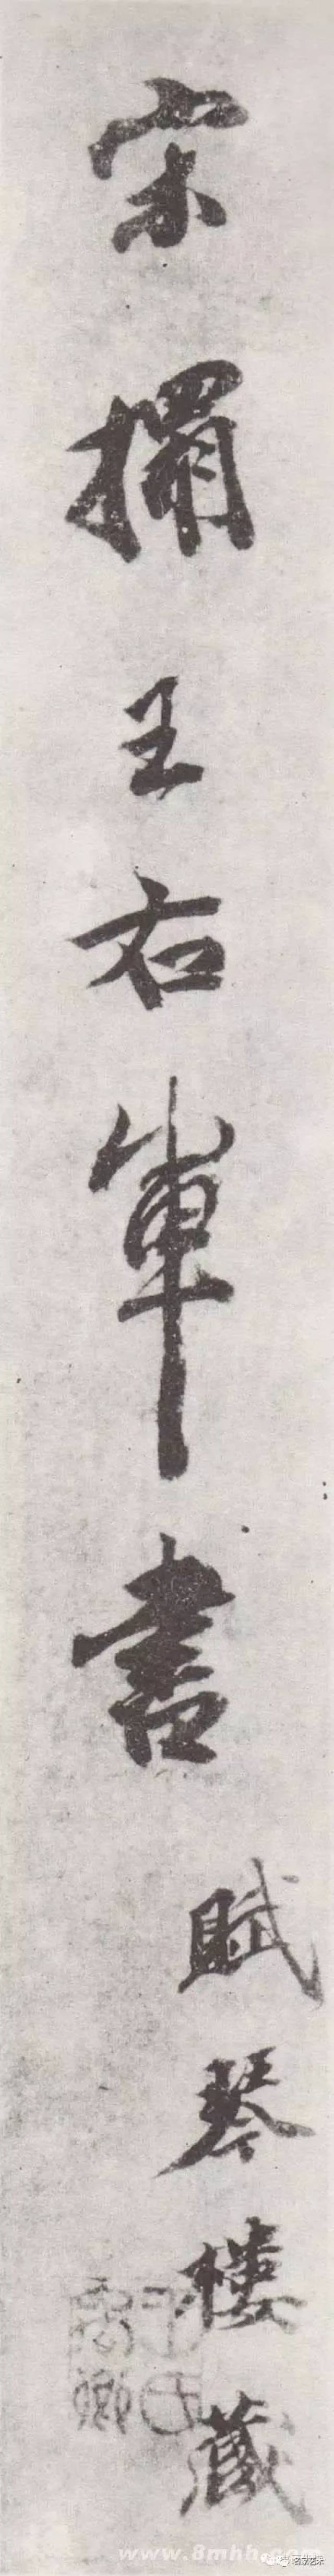 宋搨王右軍書
賦琴樓藏
www.8mhh.com
名家艺术